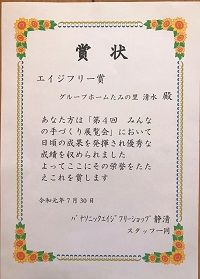 賞状
エイジフリー賞
グループホームたみの里 清水 殿
あなた方は「第4回 みんな
の手づくり展覧会」において
日頃の成果を発揮され優秀な
成績を収められました
よってここにその栄誉をたた
えこれを賞します
令和元年7月30日
パナソニックエイジフリーショップ静清
スタッフ一同